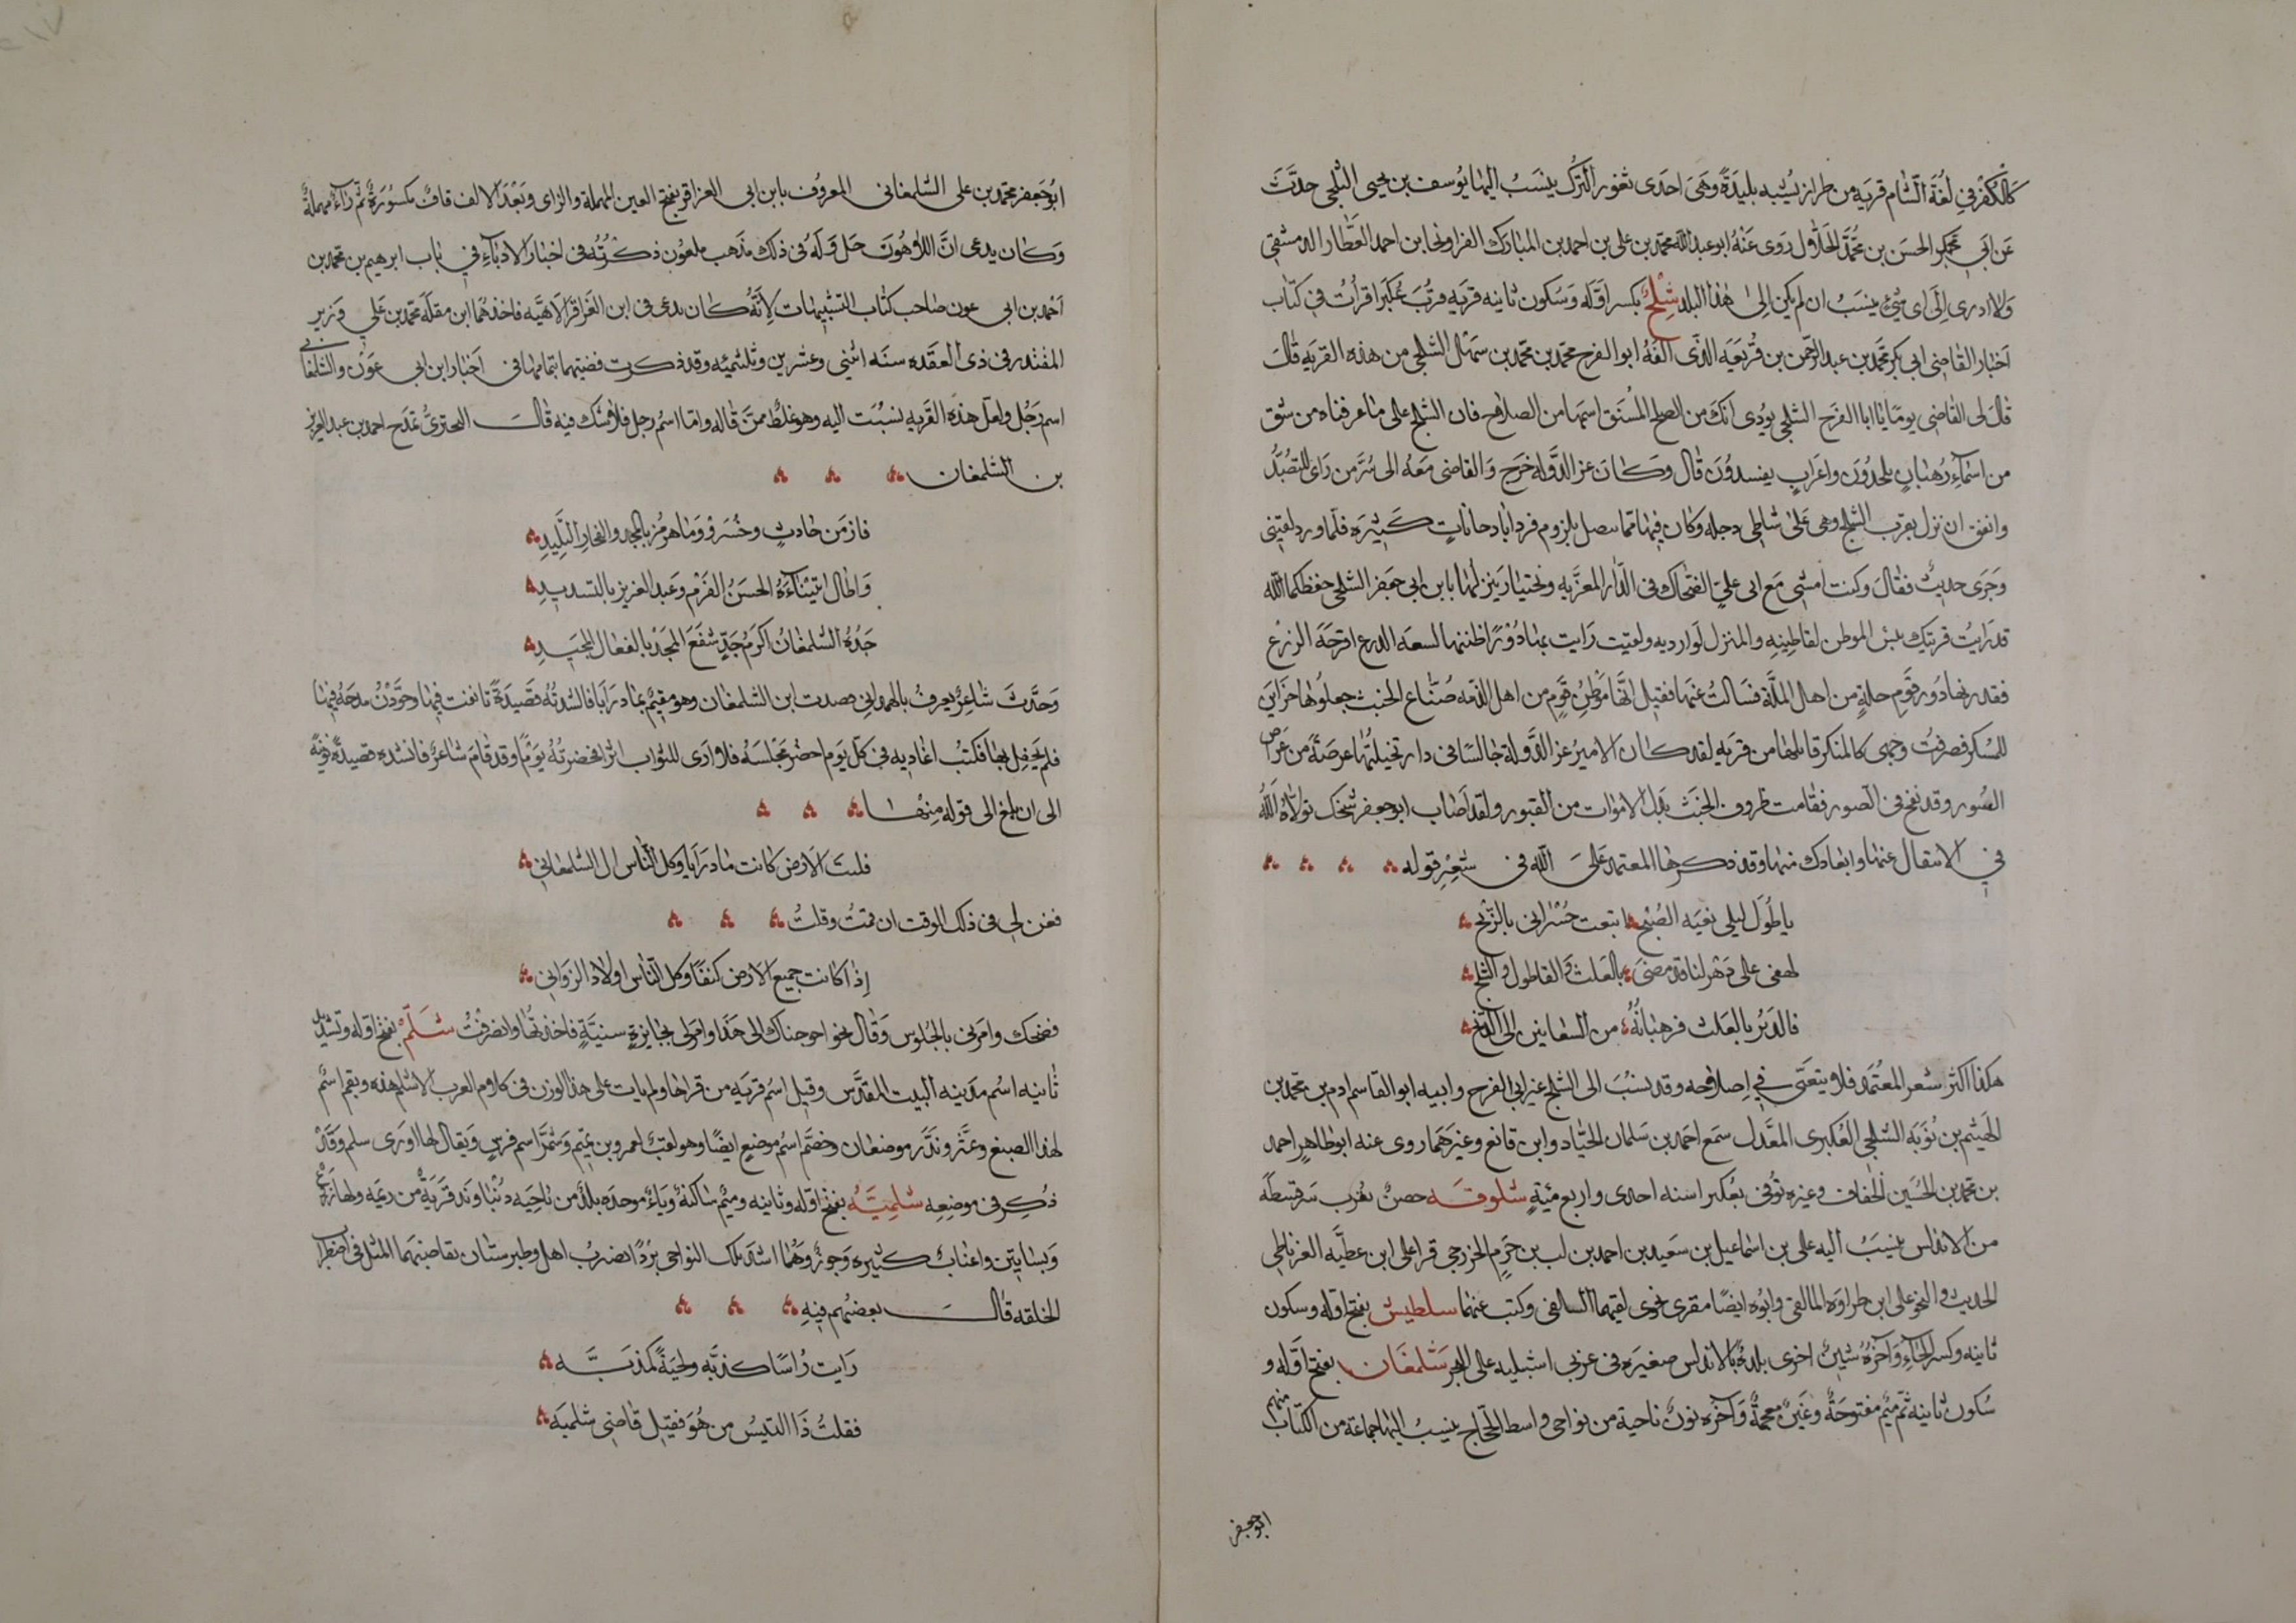 كالكفر في لغة الشام قرية من طراز يشبه بليدة وهي احدى ثغور الترك ينسب اليها يوسف بن يحيى الشلجي حدث
عن ابي الحسن بن محمد روى عنه ابو عبدالله محمد بن علي بن احمد بن المبارك الفراو نجا بن احمد العطار الدمشقي
ولا ادري الى اي شيء ينسب ان لم يكن الى هذا البلد شلج بكسر اوله وسكون ثانيه قرية قرب عكبرا قرات في كتاب
اخبار القاضي ابي بكر محمد بن عبد الرحمن بن قريعة الذي الفه ابو الفرح محمد بن محمد بن سهل الشلجي من هذه القرية قال
قال لي القاضي يوما يا ابا الفرح الشلجي يؤدى انك من الصلح المشتق اسمها من الصلاح فان الشلج على ما عرفناه من شق
من اسماء رهبان يلحدون واعراب يفسدون قال وكان عز الدولة خرج والقاضي معه الى سر من راى للتصيد
واتفق ان نزل بقرب الشلج وهي على شاطي دجله وكان فيها مما يتصل بلزوم فرداباد حانات كثيرة فلما ورد لقيني
وجرى حديث فقال وكنت امشي مع ابي علي الضحاك وفي الدار المعزية وبختيار ينزلها يا بن ابي جعفر الشلجي حفظكما الله
قد رايت قريتك بئس الموطن لقاطنيه والمنزل لوارديه ولقيت رايت بها دورا ظننتها لسعة الذرع اقرحة الزرع
فقدرتها دور قوم جلة من اهل الملة فسالت عنها فقيل انها موطن قوم من اهل الذمة صناع الخبث جعلوها خزاين
للسكر فصرفت وجهي كالمنكر قابلها من قرية لقد كان الامير عز الدولة جالسا في دار تخيلتها عرصة من عراص
الصور وقد نفخ في الصور فقامت ظروف الخبث بدل الاموات من القبور ولقد اصاب ابو جعفر شيخك تولاه الله
في الانتقال عنها وابعادك منها وقد ذكرها المعتمد على الله في شعر قوله
يا طول ليلي بفية الصبح اتبعت خسراني بالربح
لهفي على دهر لنا قد مضى بالعلث والقاطول والشلج
فالدير بالعلث فرهبانه من الشعانين الى الدبح
هكذا اكثر شعر المعتمد فلا يتعنى في اصلاحه وقد ينسب الى الشلج غير ابي الفرج وابيه ابو القاسم ادم بن محمد بن
الهيثم بن توبة الشلجي العكبري المعدل سمع احمد بن سلمان الحيَاد وابن قانع وغيرهما روى عنه ابو طاهر احمد
بن محمد بن الحسين الخفاف وغيره توفي بعكبرا سنه احدى واربع مئة شلوقه حصن بقرب سرقسطة
من الاندلس ينسب اليه علي بن اسماعيل بن سعيد بن احمد بن لب بن حزم الخزرجي قرا على ابن عطية الغرناطي
الحديث والنحو على ابن طراوة المالقي وابوه ايضا مقرى نحوى لقيهما السلفي وكتب عنهما سلطيش بفتح اوله وسكون
ثانيه وكسر الحاء وآخره شين اخرى بلدة بالاندلس صغيرة في غربي اشبيليه على البحر شلمغان بفتح اوله و
سكون ثانيه ثم ميم مفتوحة وغين معجمة وآخره نون ناحية من نواحي واسط الحجاج ينسب اليها جماعة من الكتاب منهم
ابو جعفر
ابو جعفر محمد بن علي الشلمغاني المعروف بابن ابي العزاقر بفتح العين المهملة والزاى وبعد الالف قاف مكسورة ثم راء مهملة
وكان يدعى ان اللاهوت حل وله في ذلك مذهب ملعون ذكرته في اخبار الادباء في باب ابرهيم بن محمد بن
احمد بن ابي عون صاحب كتاب التشبيهات لانه كان يدعى في ابن العزاقر الالهيه فاخذهما ابن مقلة محمد بن علي وزير
المقتدر في ذى العقده سنه اثني وعشرين وثلثمئه وقد ذكرت قضيتهما بتمامها في اخبار ابن ابي عون والشلمغاني
اسم رجل ولعل هذه القريه نسبت اليه وهو غلط ممن قاله واما اسم رجل فلا شك فيه قال البحترى يمدح احمد بن عبد العزيز
بن الشلمغان
فاز من حادث وخسرو وما هرمز بالمجد والفخار التليد
واطال ابتناءه الحسن القرم وعبد العزيز بالتسديد
جده الشلمغان اكرم جد شفع المجد بالفعال المجيد
وحدث شاعر يعرف بالهمداني قصدت ابن الشلمغان وهو مقيم بمادرايا فانشدته قصيدة تانقت فيها وجودت مدحه فيها
فلم يحفل بها فكنت اغاديه في كل يوم احضر مجلسه فلا ارى للثواب اثرا فحضرته يوما وقد قام شاعر فانشده قصيدة نونية
الى ان بلغ الى قوله منها
فليت الارض كانت مادرايا وكل الناس ال الشلمغاني
فعن لي في ذلك الوقت ان قمت وقلت
اذا كانت جميع الارض كنفا وكل الناس اولاد الزواني
فضحك وامرني بالجلوس وقال نحو احوجناك الى هذا وامر لي بجايزة سنية فاخذتها وانصرفت شلم بفتح اوله وتشديد
ثانيه اسم مدينه البيت المقدس وقيل اسم قرية من قراها ولم يات على هذا الوزن في كلام العرب الا شلم هذه وبقم اسم
لهذا الصبغ وعثر ونذر موضعان وخضم اسم موضع ايضا وهو لقب لعمرو بن تميم وشمر اسم فرس ويقال لها اورى سلم وقد
ذكر في موضعه شلمبه بفتح اوله وثانيه وميم ساكنة وباء موحده بلد من ناحيه دنباوند قرية من ويمه ولها زرع
وبساتين واعناب كثيره وجوز وهما اشد تلك النواحي بردا يضرب اهل طبرستان بقاضيهما المثل في اضطراب
الخلقه قال بعضهم فيه
رايت راسا كذبه ولحية كمذبه
فقلت ذا التيس من هو فقيل قاضي شلمبه